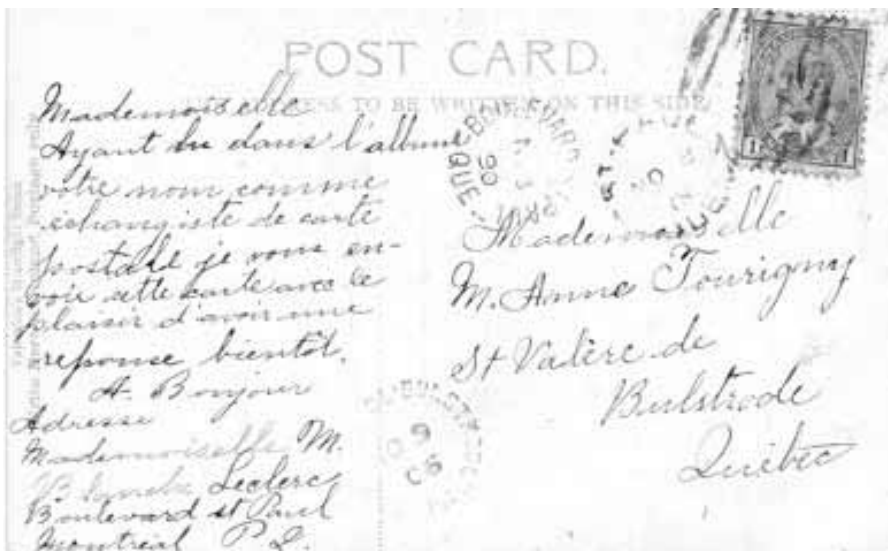 POST CARD.
ADDRESS TO BE WRITTEN ON THIS SIDE
Mademoiselle
Ayant lu dans l'album
votre nom comme
échangiste de carte
postale je vous en-
voie cette carte avec le
plaisir d'avoir une
reponse bientôt.
A. Bonjour
Adresse
Mademoiselle M.
Blanche Leclerc
Boulevard st Paul
Montreal P. Q.
Mademoiselle
M. Anne Tourigny
St Valère de
Bulstrode
Québec
1 1